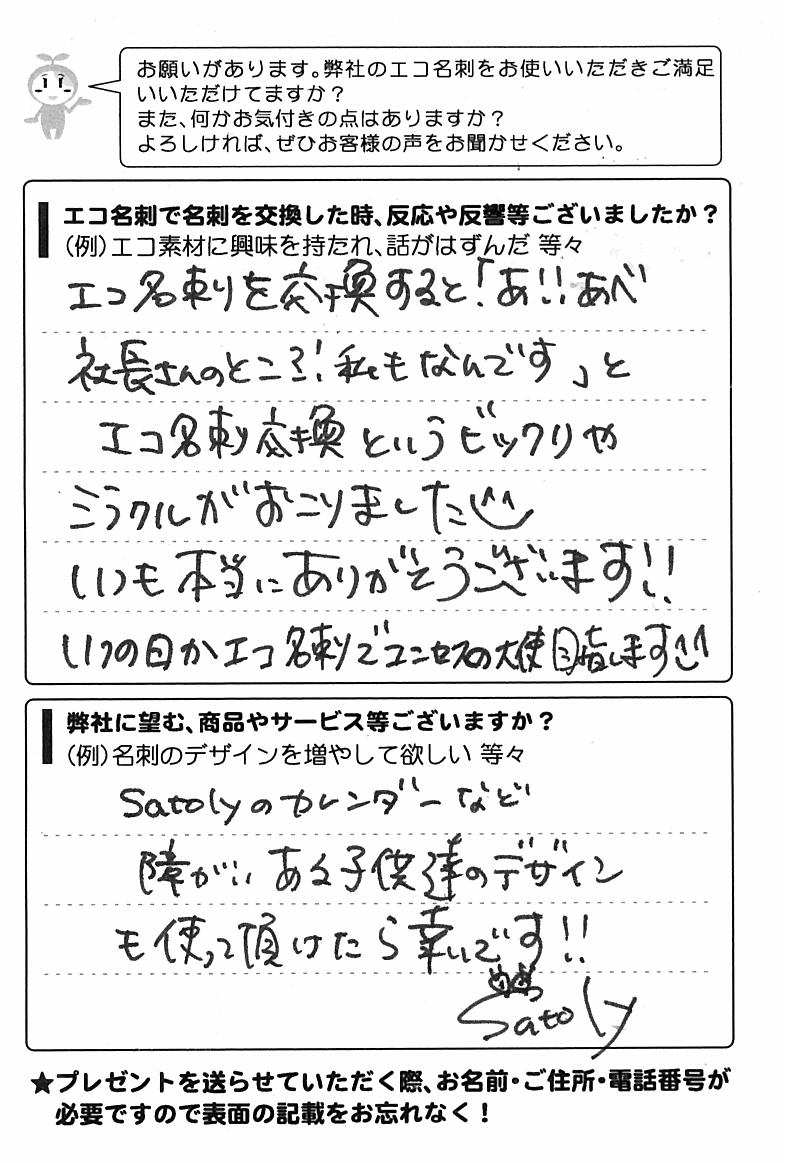 お願いがあります。弊社のエコ名刺をお使いいただきご満足
いいただけてますか？
また、何かお気付きの点はありますか？
よろしければ、ぜひお客様の声をお聞かせください。
エコ名刺で名刺を交換した時、反応や反響等ございましたか？
（例）エコ素材に興味を持たれ、話がはずんだ 等々
エコ名刺りを交換すると「あ!! あべ
社長さんのところ！私もなんです」と
エコ名刺交換というビックリや
ミラクルがおこりました
いつも本当にありがとうございます!!
いつの日かエコ名刺でユンセスの大使目指します
弊社に望む、商品やサービス等ございますか？
（例）名刺のデザインを増やして欲しい 等々
Satolyのカレンダーなど
障がいある子供達のデザイン
も使って頂けたら幸いです!!
Satoly
★プレゼントを送らせていただく際、お名前・ご住所・電話番号が
必要ですので表面の記載をお忘れなく！